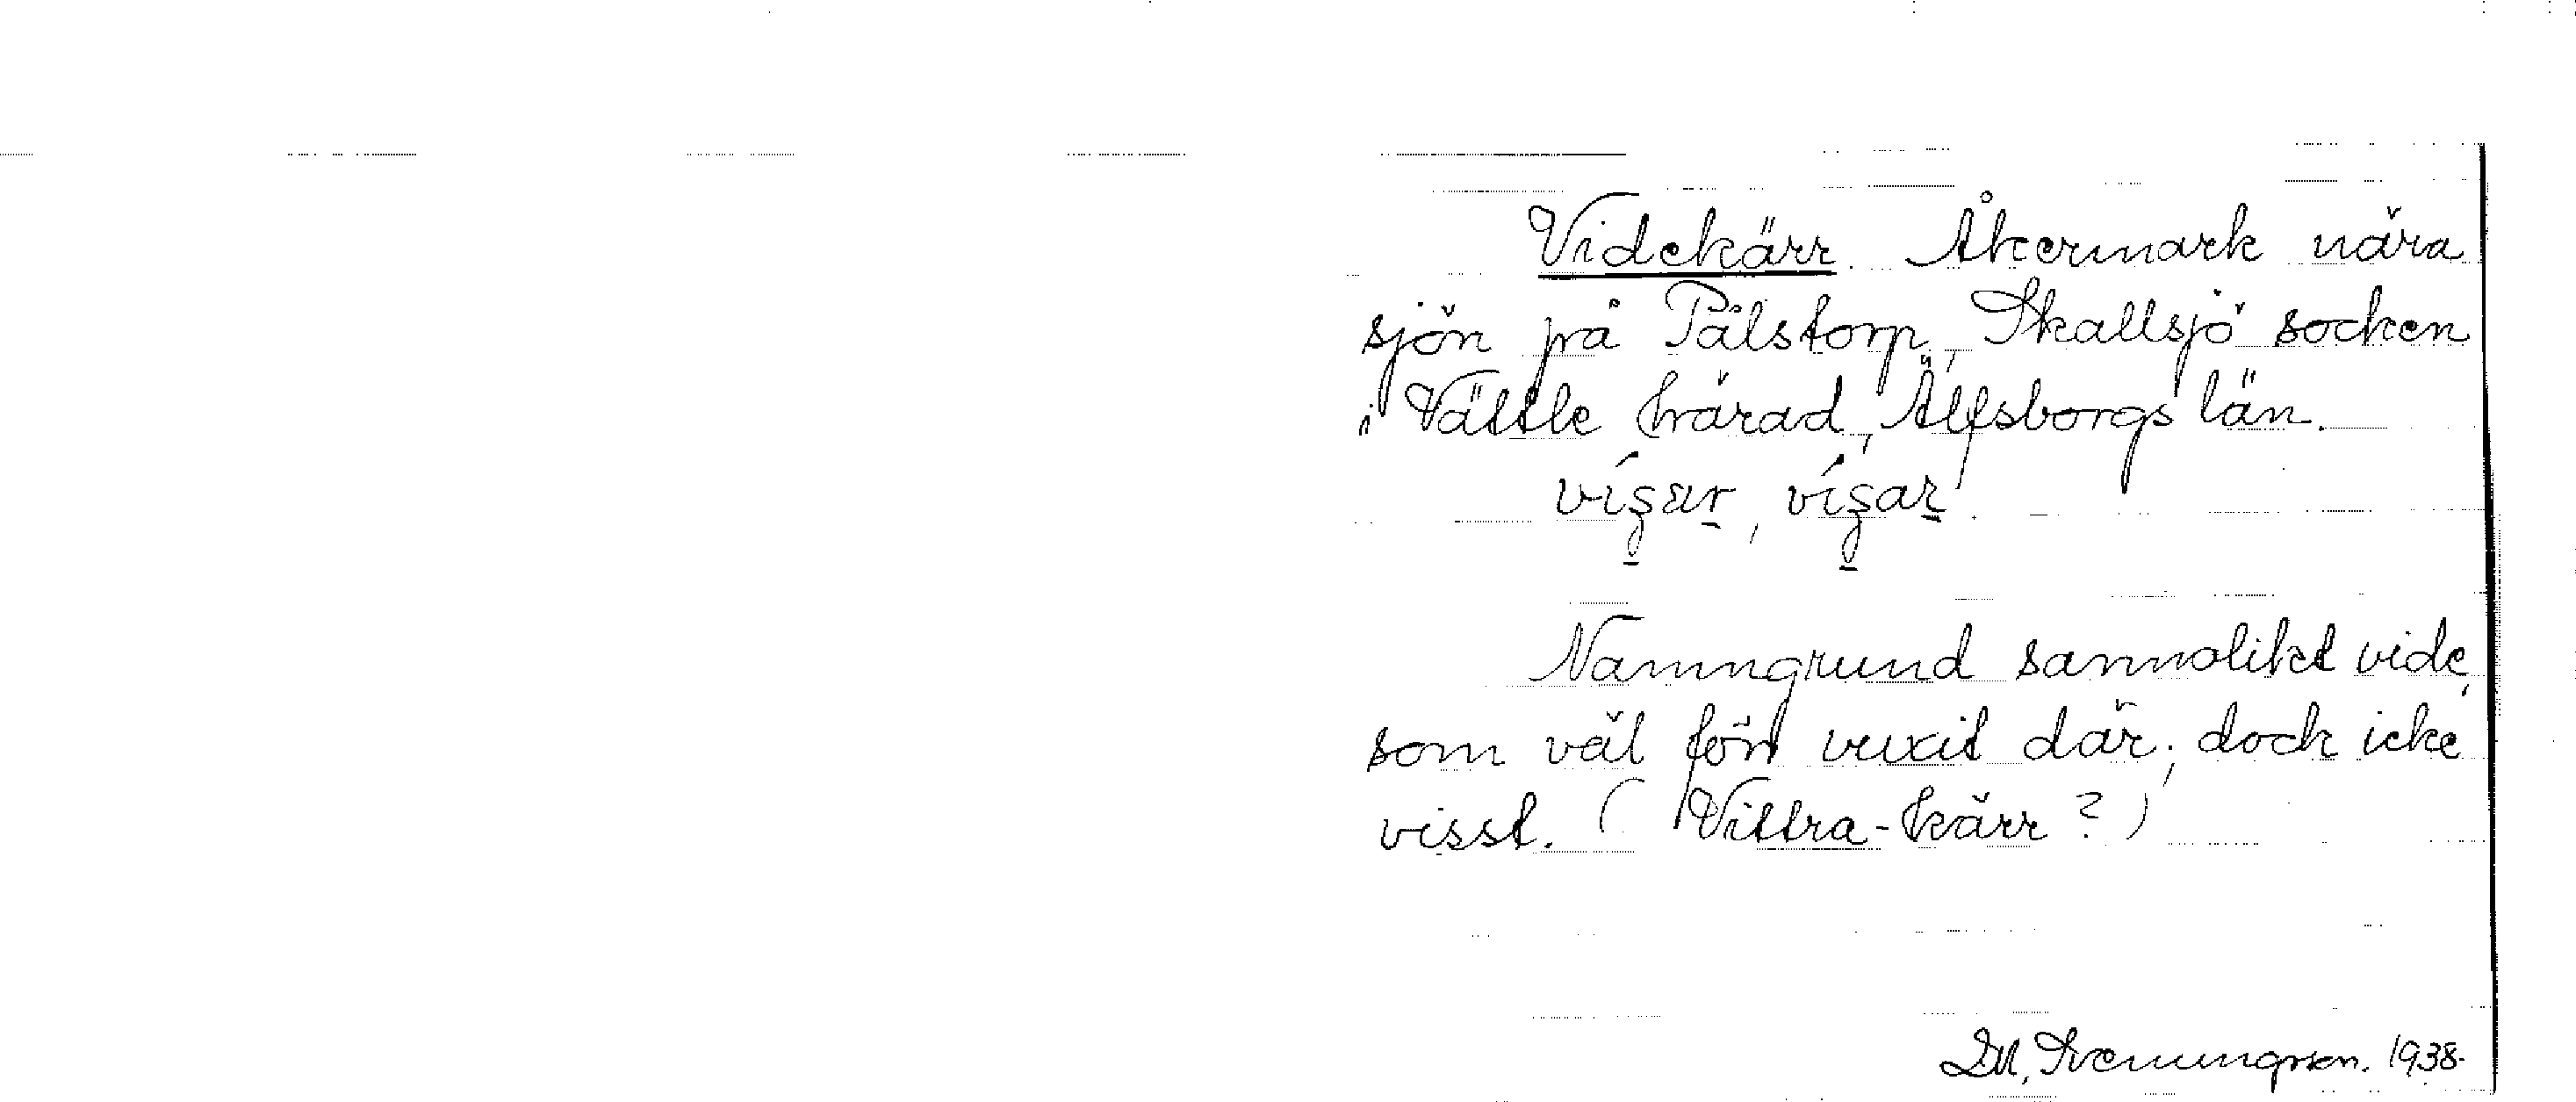 Videkärr. Åkermark nära
sjön på Pålstorp, Skallsjö socken
i Vättle härad, Älfsborgs län.

Namngrund sannolikt vide,
som väl förr vuxit där; dock icke
visst. (Vittra-kärr?)
Svenungsson. 1938.